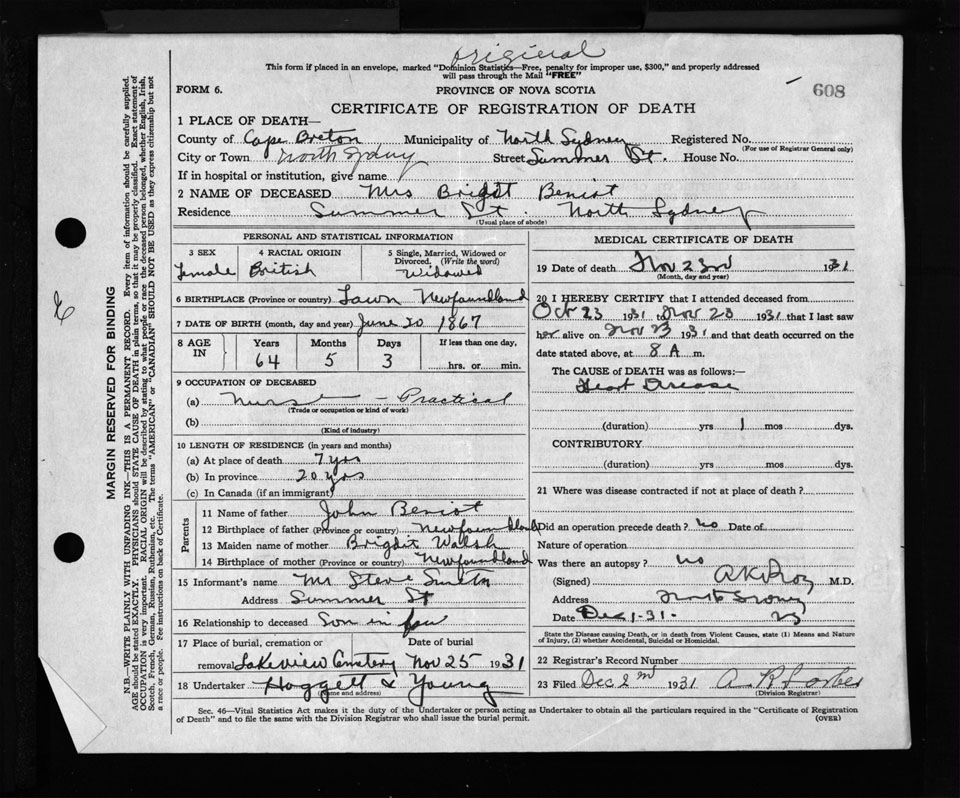 original
This form if placed in an envelope, marked "Dominion Statistics—Free, penalty for improper use, $300," and properly addressed
will pass through the Mail "FREE"
FORM 6.
PROVINCE OF NOVA SCOTIA
608
CERTIFICATE OF REGISTRATION OF DEATH
1 PLACE OF DEATH—
County of Cape Breton Municipality of North Sydney Registered No.
(For use of Registrar General only)
City or Town North Sydney Street Summer St. House No.
If in hospital or institution, give name
2 NAME OF DECEASED Mrs Brigit Beniot
Residence Summer St. North Sydney
(Usual place of abode)
PERSONAL AND STATISTICAL INFORMATION
3 SEX
Female
4 RACIAL ORIGIN
British
5 Single, Married, Widowed or
Divorced. (Write the word)
Widowed
6 BIRTHPLACE (Province or country) Lawn Newfoundland
7 DATE OF BIRTH (month, day and year) June 20 1867
8 AGE IN
Years Months Days If less than one day,
64 5 3 hrs. or min.
9 OCCUPATION OF DECEASED
(a) Nurse — Practical
(Trade or occupation or kind of work)
(b)
(Kind of industry)
10 LENGTH OF RESIDENCE (in years and months)
(a) At place of death 7 yrs
(b) In province 20 yrs
(c) In Canada (if an immigrant)
Parents
11 Name of father John Beniot
12 Birthplace of father (Province or country) Newfoundland
13 Maiden name of mother Brigdit Walsh
14 Birthplace of mother (Province or country) Newfoundland
15 Informant's name Mr Steve Smith
Address Summer St
16 Relationship to deceased Son in law
17 Place of burial, cremation or Date of burial
removal Lakeview Cemetery Nov 25 1931
18 Undertaker Hoggett & Young
(Name and address)
MEDICAL CERTIFICATE OF DEATH
19 Date of death Nov 23rd 1931
(Month, day and year)
20 I HEREBY CERTIFY that I attended deceased from
Oct 23 1931 to Nov 23 1931 that I last saw
her alive on Nov 23 1931 and that death occurred on the
date stated above, at 8 A m.
The CAUSE of DEATH was as follows:—
Heart Disease
(duration) yrs 1 mos dys.
CONTRIBUTORY
(duration) yrs mos dys.
21 Where was disease contracted if not at place of death?
Did an operation precede death? no Date of
Nature of operation
Was there an autopsy? no
(Signed) M.D.
Address
Date Dec 1-31-
State the Disease causing Death, or in death from Violent Causes, state (1) Means and Nature
of Injury, (2) whether Accidental, Suicidal or Homicidal.
22 Registrar's Record Number
23 Filed Dec 2nd 1931 A. R. Forbes
(Division Registrar)
Sec. 46—Vital Statistics Act makes it the duty of the Undertaker or person acting as Undertaker to obtain all the particulars required in the "Certificate of Registration
of Death" and to file the same with the Division Registrar who shall issue the burial permit.
(OVER)
MARGIN RESERVED FOR BINDING
N.B.—WRITE PLAINLY WITH UNFADING INK—THIS IS A PERMANENT RECORD. Every item of information should be carefully supplied.
AGE should be stated EXACTLY. PHYSICIANS should STATE CAUSE OF DEATH in plain terms, so that it may be properly classified. Exact statement of
OCCUPATION is very important. RACIAL ORIGIN will be described by stating to what people or race the deceased person belonged, whether English, Irish,
Scotch, French, German, Russian, Ruthenian, etc. The terms "AMERICAN" or "CANADIAN" SHOULD NOT BE USED as they express citizenship but not
a race or people. See instructions on back of Certificate.